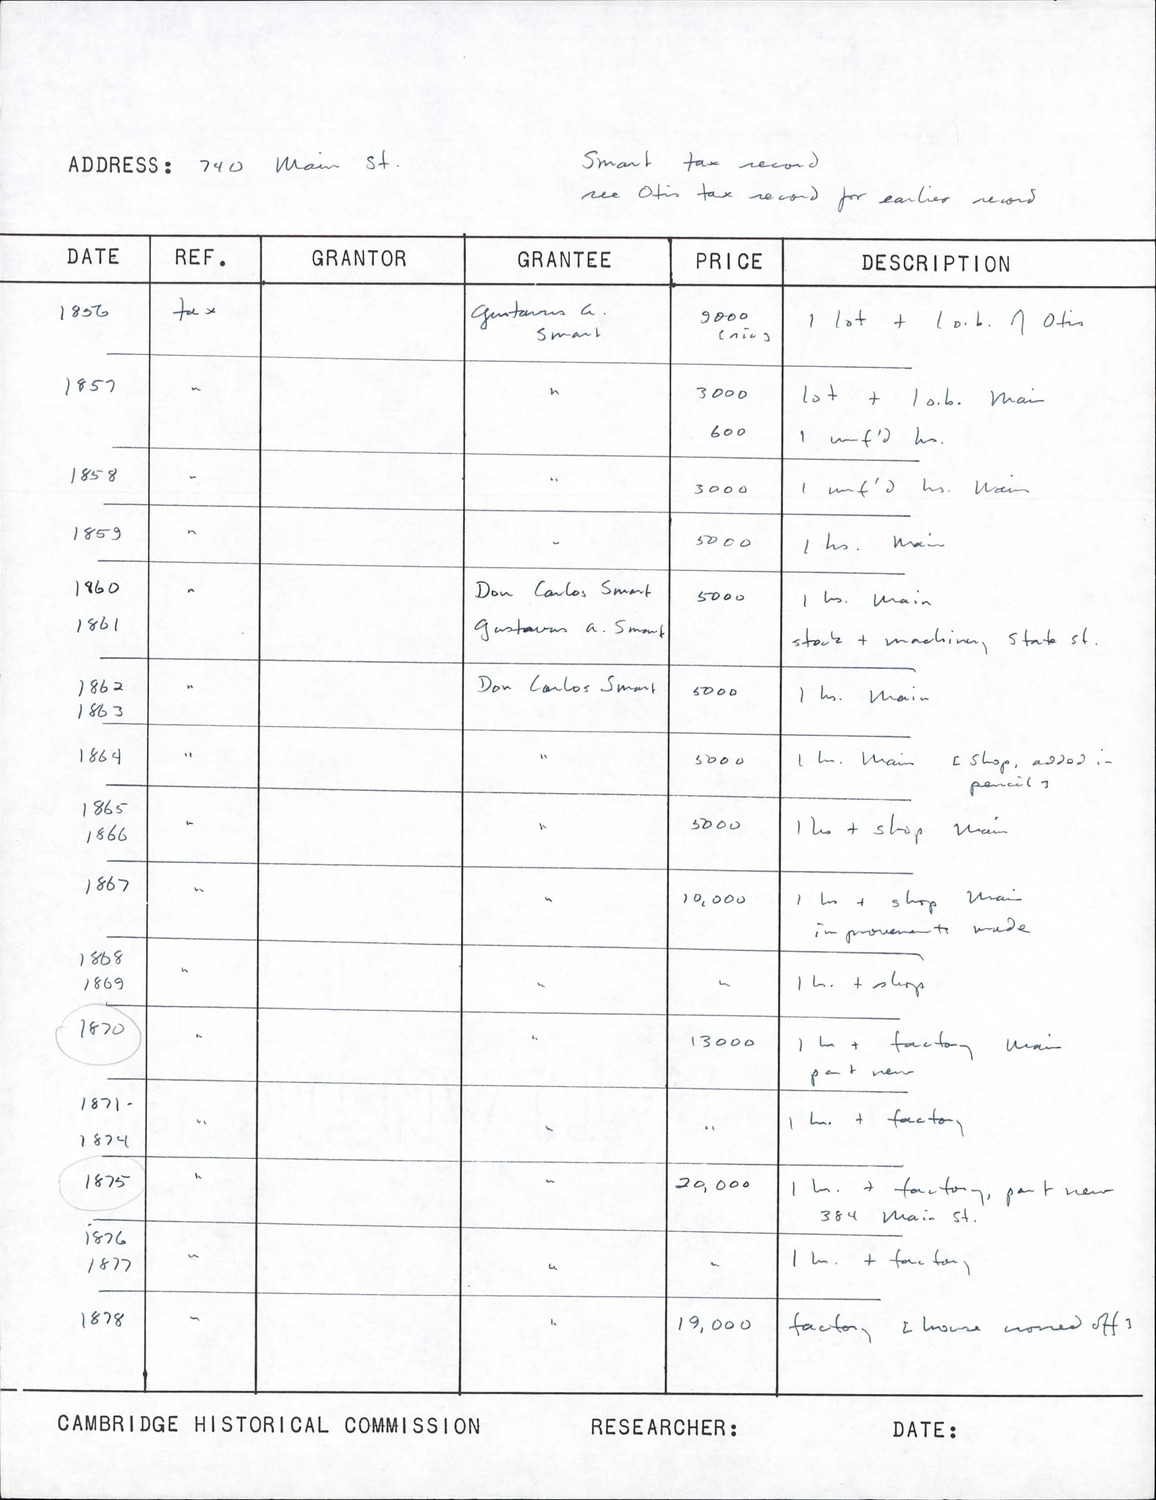 ADDRESS: 740 Main St.
Smart tax record
see Otis tax record for earlier record
DATE REF. GRANTOR GRANTEE PRICE DESCRIPTION
1856 tax Gustavus A. Smart 9000 (sic] 1 lot + 1 o.b. of Otis
1857 " " 3000 lot + 1 o.b. Main
600 1 unf'd hs.
1858 " " 3000 1 unf'd hs. Main
1859 " " 5000 1 hs. Main
1860 " Don Carlos Smart 5000 1 hs. Main
1861 Gustavus A. Smart stock + machinery State st.
1862 " Don Carlos Smart 5000 1 hs. Main
1863
1864 " " 5000 1 hs. Main [shop, added in
pencil]
1865 " " 5000 1 hs + shop Main
1866
1867 " " 10,000 1 hs + shop Main
improvements made
1868 " " " 1 hs. + shop
1869
1870 " " 13000 1 hs + factory Main
part new
1871- " " " 1 hs. + factory
1874
1875 " " 20,000 1 hs. + factory, part new
384 Main St.
1876 " " " 1 hs. + factory
1877
1878 " " 19,000 factory [house moved off]
CAMBRIDGE HISTORICAL COMMISSION RESEARCHER: DATE: